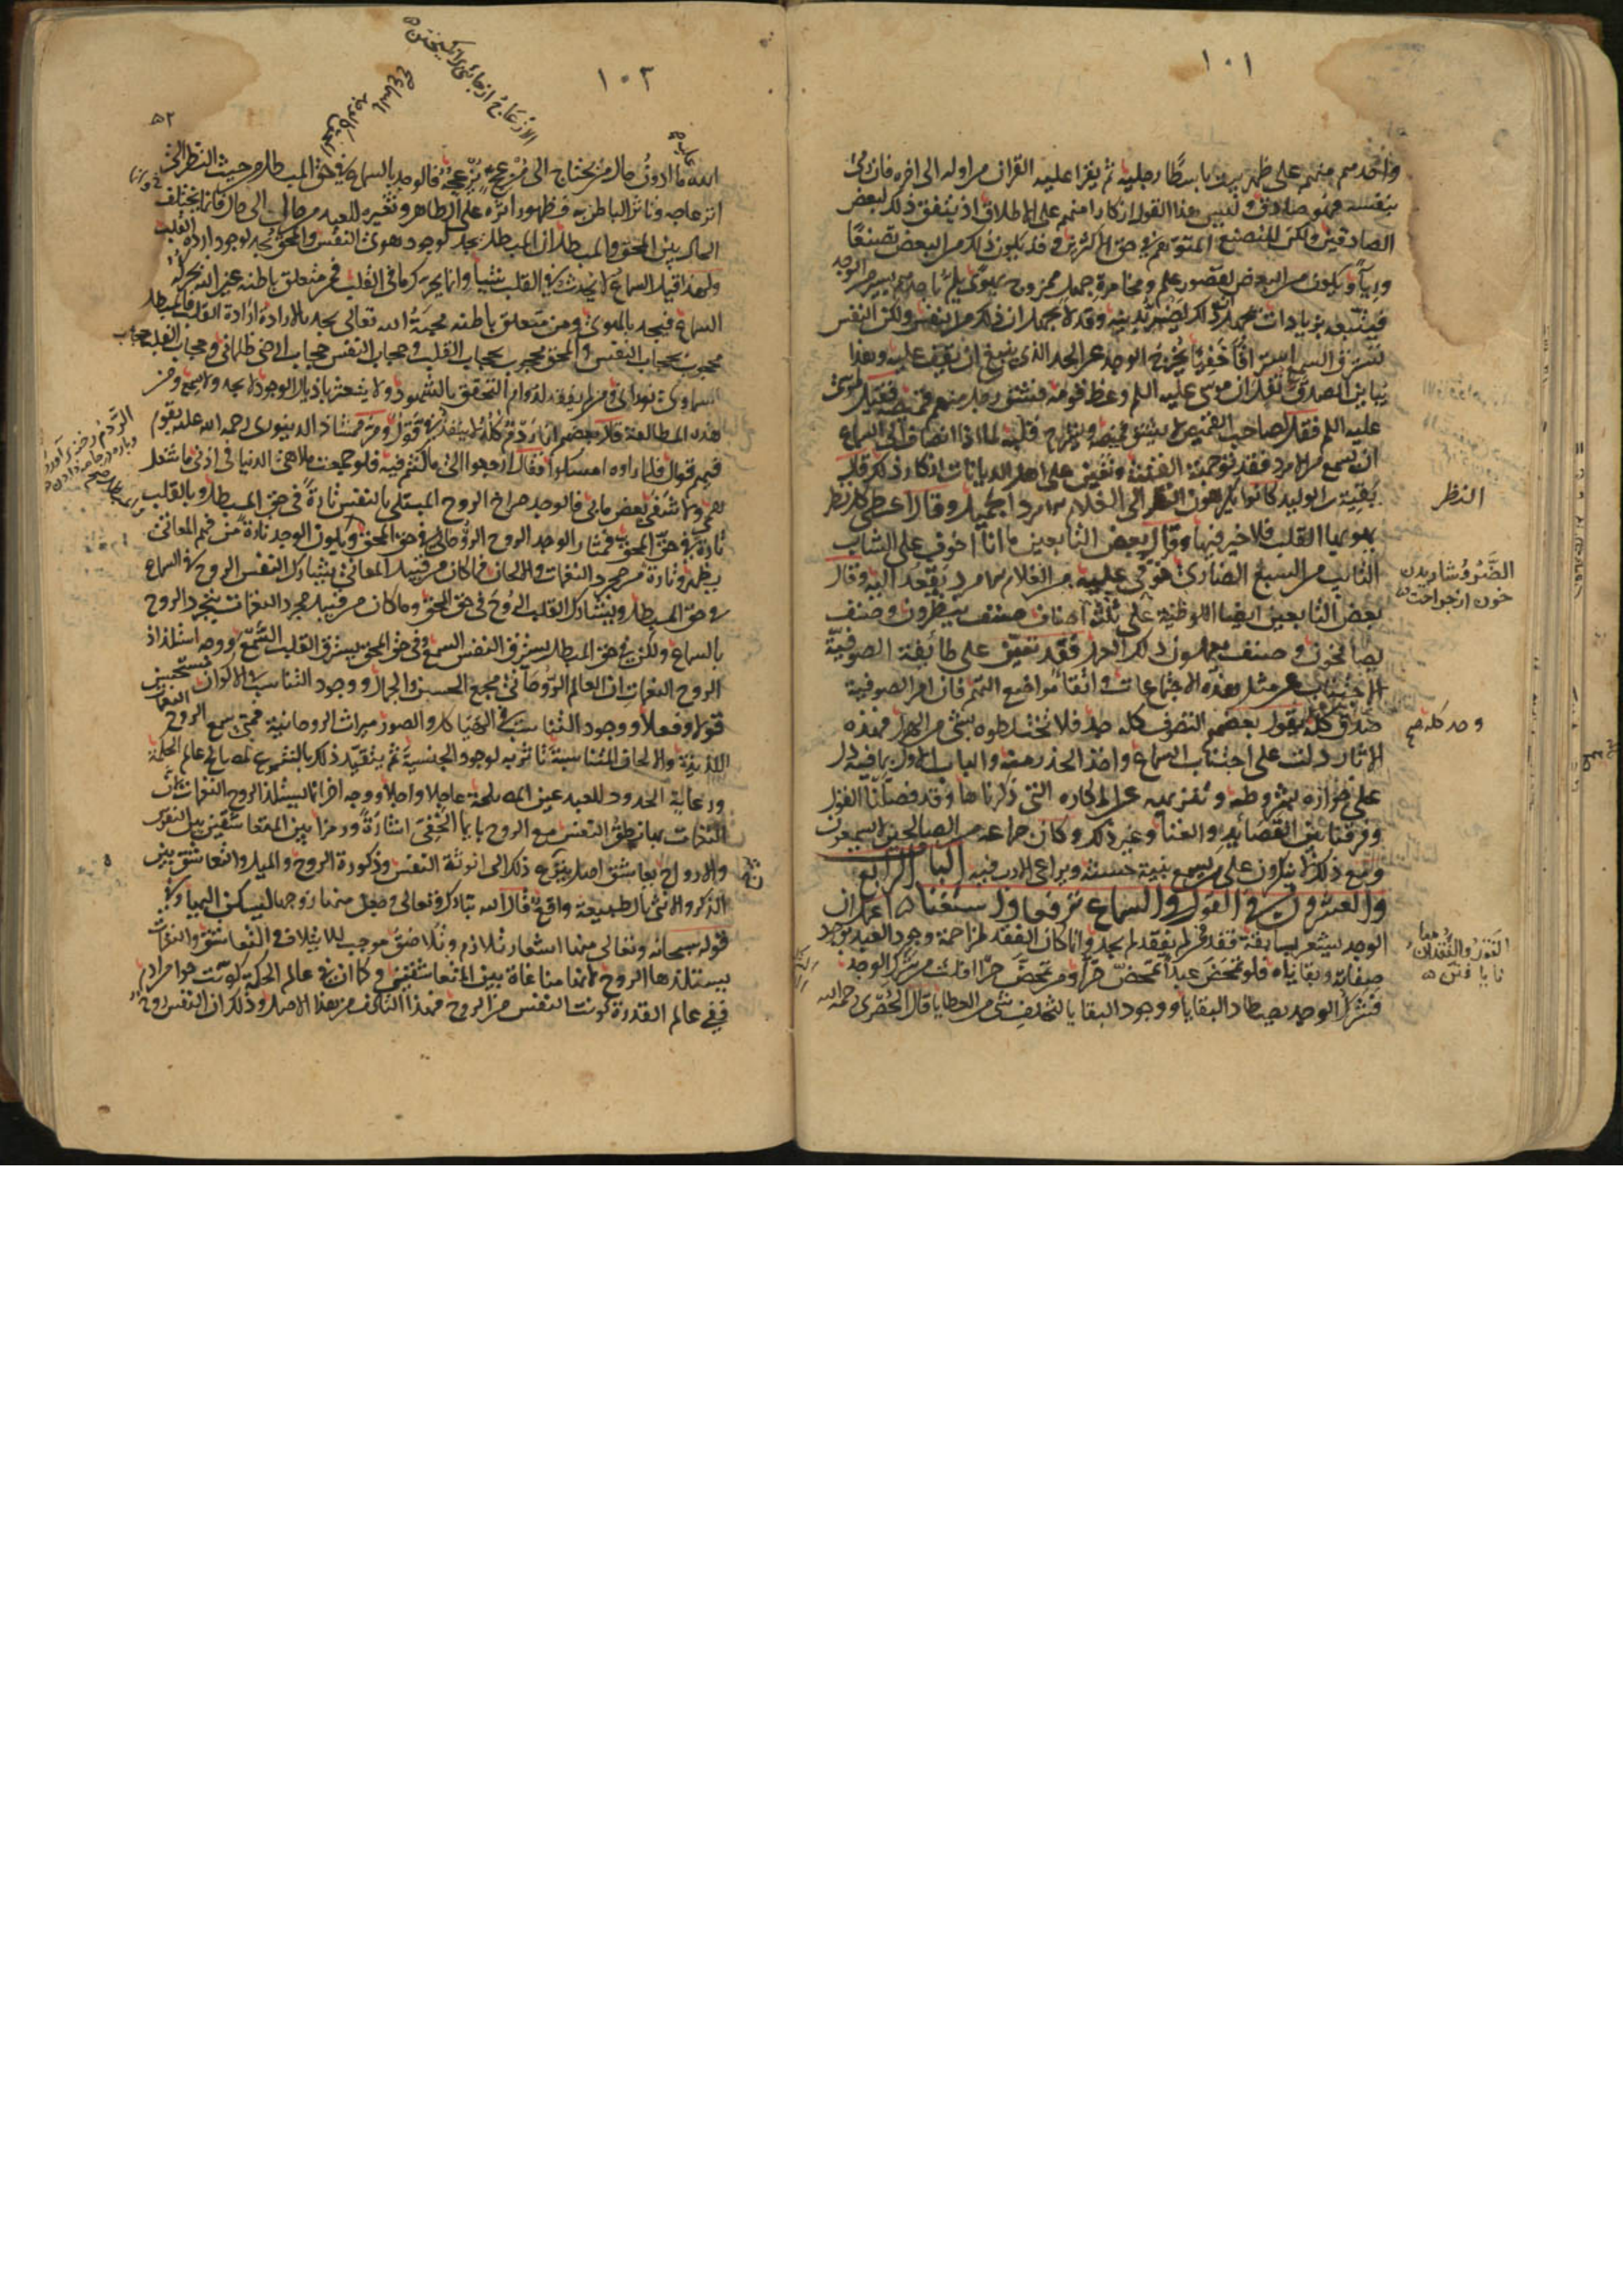 ١٠١
واحد منهم على ظهر بيت باسطا رجليه ثم يقرا عليه القران من اوله الى اخره فان رمى
بنفسه فهو صادق وليس هذا القول انكارا منهم على الاطلاق اذ يتفق ذلك لبعض
الصادقين ولكن للتصنع المتوهم في حق الاكثرين وقد يكون ذلك من البعض تصنعا
ورياء ويكون من البعض لقصور علم ومخامرة جهل ممزوج بهوى يلم باحدهم يسير من الوجد
فيتبعه بزيادات يجهل ان ذلك يضر بدينه وقد لا يجهل ان ذلك من النفس ولكن النفس
تسترق السمع استراقا خفيا يخرج الوجد عن الحد الذي ينبغي ان يقف عليه وهذا
يباين الصدق نقل ان موسى عليه السلم وعظ قومه فشق رجل منهم قميصه فقيل لموسى
عليه السلم فقل لصاحب القميص لا يشق قميصه ويشرح قلبه لما اذا انضاف الى السماع
ان يسمع من امرد فقد توجهت الفتنة وتعين على اهل الديانات انكار ذلك قال
بقية بن الوليد كانوا يكرهون النظر الى الغلام الامرد الجميل وقال عطا كل نظرة
يهواها القلب فلا خير فيها وقال بعض التابعين ما انا اخوف على الشاب
التائب من السبع الضاري خوفي عليه من الغلام الامرد يقعد اليه وقال
بعض التابعين ايضا اللوطية على ثلثة اصناف صنف ينظرون وصنف
يصافحون وصنف يعملون ذلك العمل فقد تعين على طائفة الصوفية
الاجتناب عن مثل هذه الاجتماعات واتقاء مواضع التهم فان امر الصوفية
صدق كله يقول بعضهم التصوف كله جد فلا تخلطوه بشئ من الهزل فهذه
الاثار دلت على اجتناب السماع واخذ الحذر منه والباب الاول بما فيه دل
على جوازه بشروطه وتنزيهه عن المكاره التي ذكرناها وقد فصلنا القول
وفرقنا بين القصائد والغنا وغير ذلك وكان جماعة من الصالحين لا يسمعون
ومع ذلك لا ينكرون على من يسمع بنية حسنة ويراعي الادب فيه الباب الرابع
والعشرون في القول في السماع ترفعا واستغناء اعلم ان
الوجد يشعر بسابقة فقد فمن لم يفقد لم يجد وانما كان الفقد لمزاحمة وجود العبد بوجود
صفاته وبقاياه فلو تمحض عبدا تمحض حرا ومن تمحض حرا افلت من شرك الوجد
فشرك الوجد يصطاد البقايا ووجود البقايا لتخلف شئ من العطايا قال الحصري رحمه الله
النظر
خون از جراحت
الفقد والفقدان
نا یافتن
١٠٢
٥٢
الازعاج از جای برانگیختن
الله ما ادون حال من يحتاج الى مزعج يزعجه فالوجد بالسماع في حق المبطل من حيث النظر الى
انزعاجه وتاثر الباطن به وظهور اثره على الظاهر وتغييره للعبد من حال الى حال وانما يختلف
الحال بين المحق والمبطل ان المبطل يجد لوجود هوى النفس والمحق يجد لوجود ارادة القلب
ولهذا قيل السماع لا يحدث في القلب شيئا وانما يحرك ما في القلب فمن متعلق باطنه بغير الله يحركه
السماع فيجد بالهوى ومن متعلق باطنه محبة الله تعالى يجد بالارادة ارادة القلب فالمبطل
محجوب بحجاب النفس والمحق محجوب بحجاب القلب وحجاب النفس حجاب ارضي ظلماني وحجاب القلب حجاب
سماوي نوراني ومن لم يفقد لدوام التحقق بالشهود ولا يتعثر باذيال الوجود لا يجد ولا يسمع ومن
هذه المطالعة قال بعضهم انا ردم كله لا ينفذ في قول ومر ممشاد الدينوري رحمه الله عليه بقوم
فيهم قوال فلما راوه امسكوا فقال ارجعوا الى ما كنتم فيه فلو جمعت ملاهي الدنيا في اذني ما شغل
همي ولا شفي بعض ما بي فالوجد صراخ الروح المبتلى بالنفس تارة في حق المبطل وبالقلب
تارة في حق المحق فمثار الوجد الروح الروحاني في حق المحق ويكون الوجد تارة من فهم المعاني
يظهر وتارة من مجرد النغمات والالحان فما كان من قبيل المعاني يشارك النفس الروح في السماع
في حق المبطل ويشارك القلب الروح في حق المحق وما كان من قبيل مجرد النغمات يتجرد الروح
بالسماع ولكن في حق المبطل يسترق النفس السمع وفي حق المحق يسترق القلب السمع ووجه استلذاذ
الروح النغمات ان العالم الروحاني مجمع الحسن والجمال ووجود التناسب في الاكوان مستحسن
قولا وفعلا ووجود التناسب في الهياكل والصور ميراث الروحانية فمتى سمع الروح النغمات
اللذيذة والالحان المتناسبة تاثر به لوجود الجنسية ثم يتقيد ذلك بالشرع لمصالح عالم الحكمة
ورعاية الحدود للعبد عين المصلحة عاجلا واجلا ووجه اخر انما يستلذ الروح النغمات لان
النغمات بها نطق النفس مع الروح بالايما الخفي اشارة ورمزا بين المتعاشقين وبين النفوس
والارواح تعاشق اصلي ينزع ذلك الى انوثة النفس وذكورة الروح والميل والتعاشق بين
الذكر والانثى بالطبيعة واقع قال الله تبارك وتعالى وجعل منها زوجها ليسكن اليها وفي
قوله سبحانه وتعالى منها اشعار بتلازم وتلاصق موجب للايتلاف والتعاشق والنغمات
يستلذها الروح لانها مناغاة بين المتعاشقين وكما ان في عالم الحكمة كونت حوا من ادم
ففي عالم القدرة كونت النفس من الروح فهذا التالف من هذا الاصل وذلك ان النفس روح